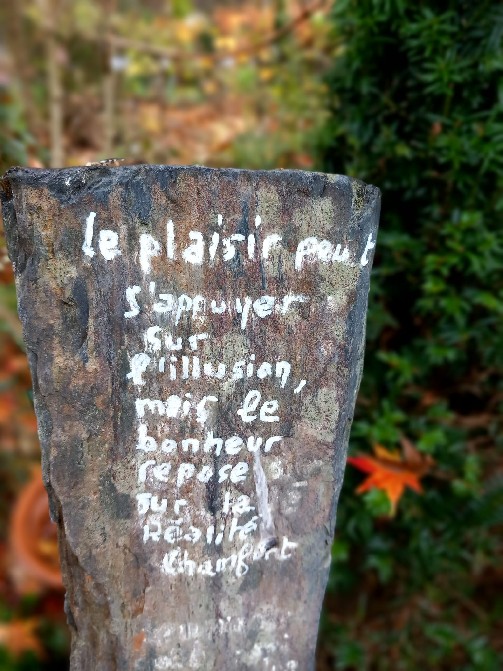 le plaisir peut
s'appuyer
sur
l'illusion,
mais le
bonheur
repose
sur la
Réalité
Chamfort